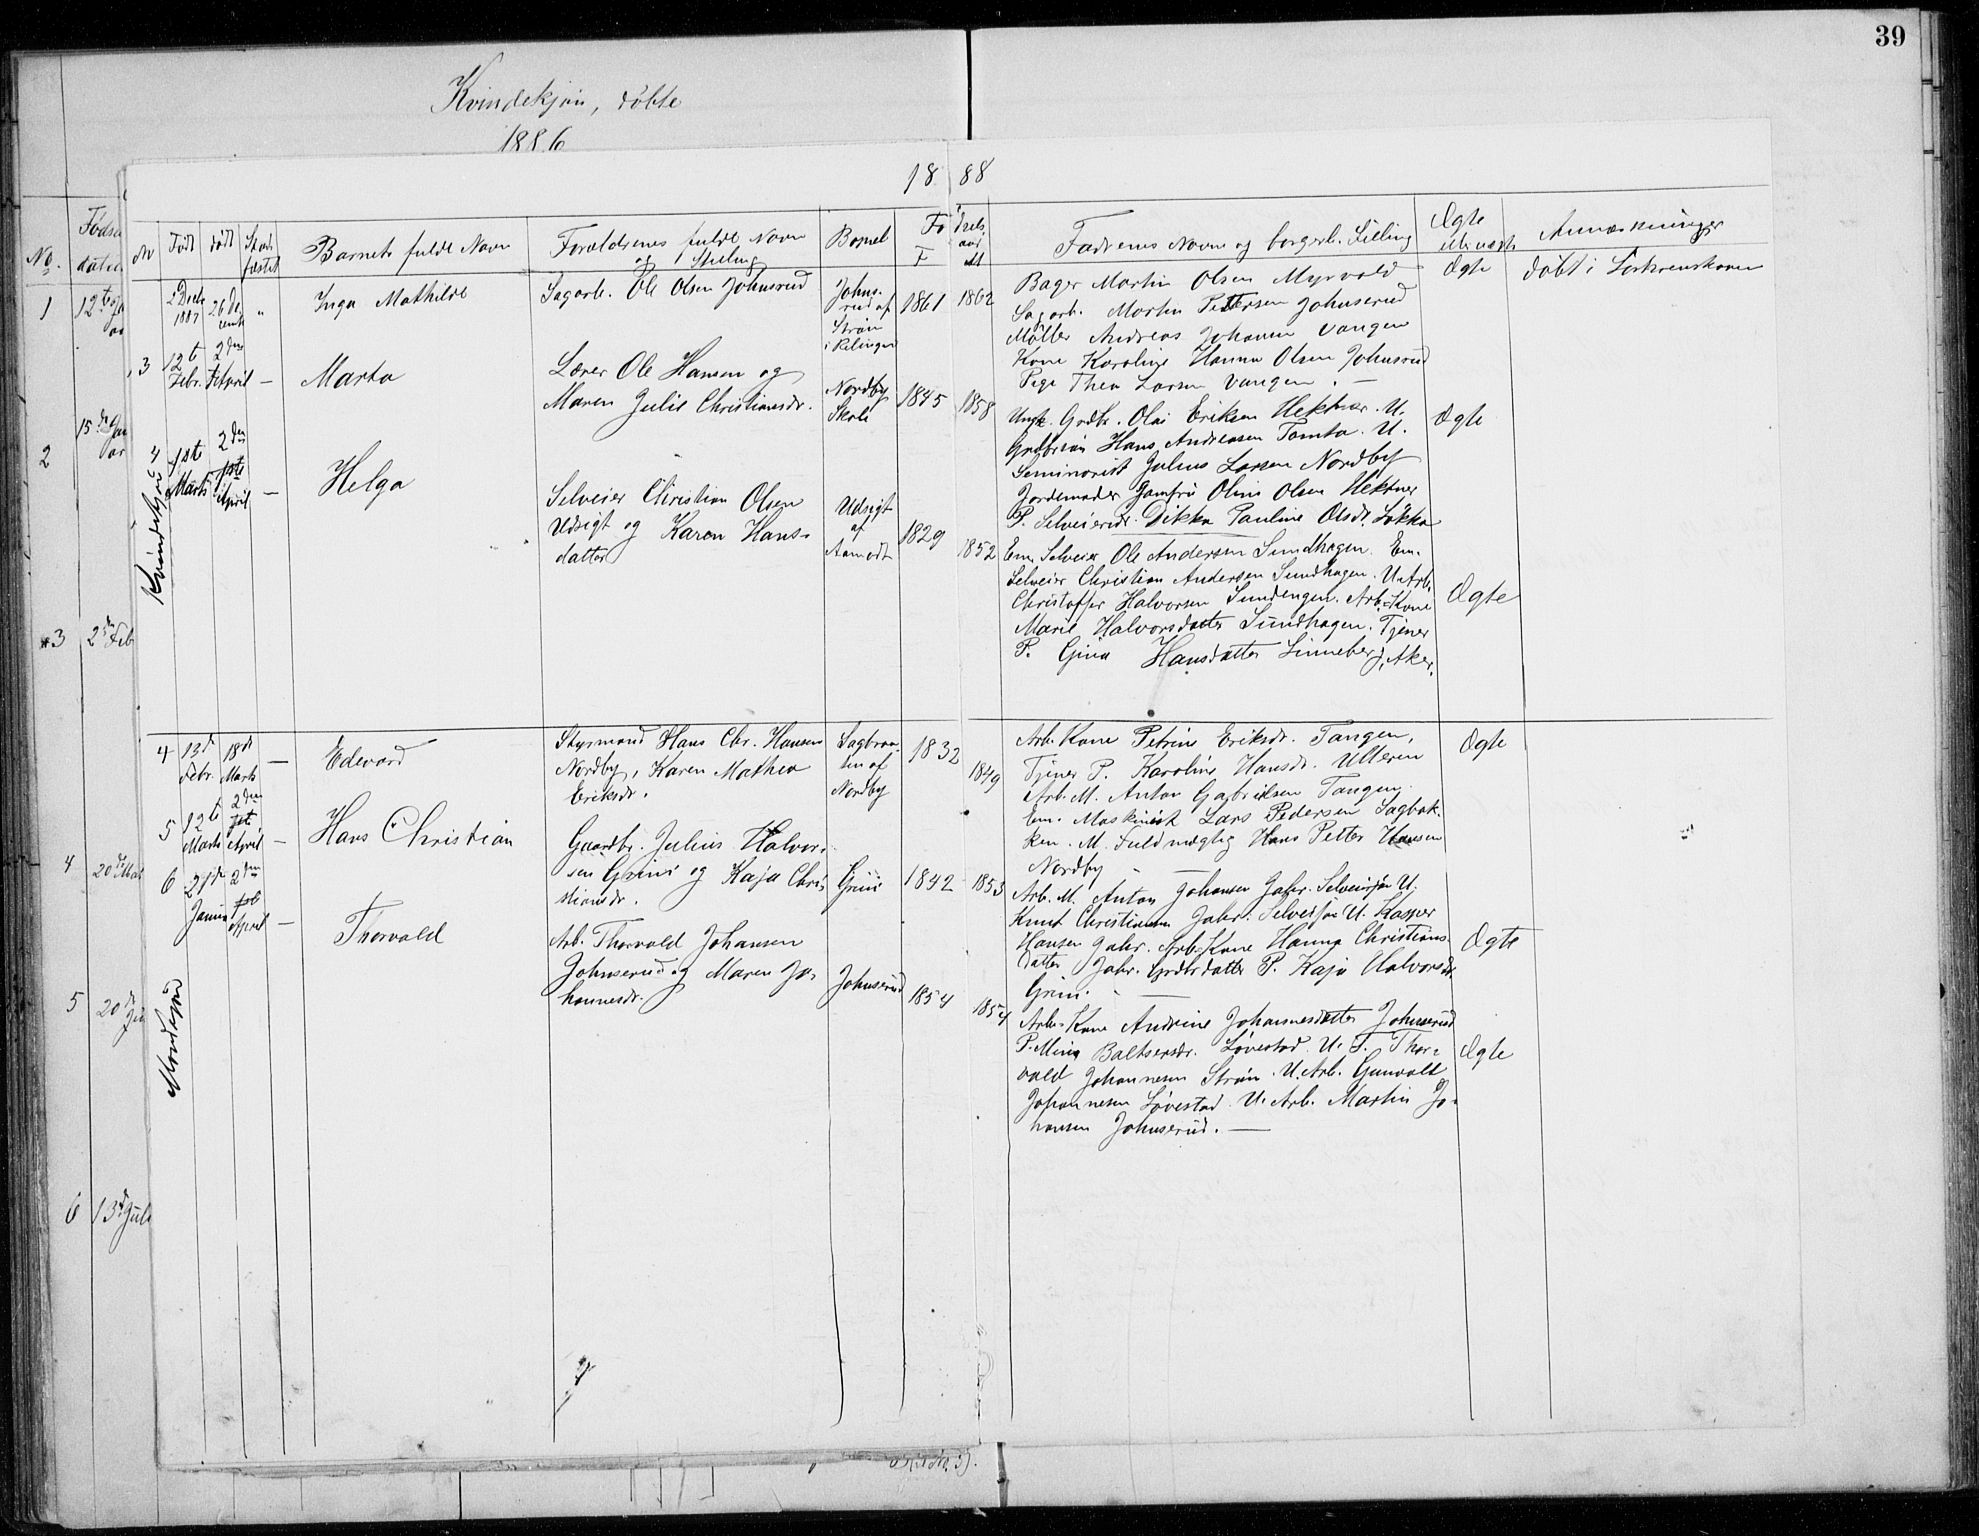 39
Kvindekjøn, døbte
1886
No.
Fødsels
datum
1
12te Ja
2
15de Jan
3
2den Feb
4
20de Mar
5
20de
6
13de Juli
18 88
No
Født
døbt
Stad-
fæstet
Barnets fulde Navn
Forældrenes fulde Navn
og Stilling
Bopæl
Fødsels
aar
F
M
Faddernes Navn og borgerl. Stilling
Ægte
eller uægte
Anmærkninger
Kvindekjøn
2 Decbr
1887
26 De-
cemb
"
Inga Mathilde
Sagarb. Ole Olsen Johnsrud
Johns-
rud af
Strøm
i Relingen
1861
1862
Bager Martin Olsen Myrvold
Sagarb. Martin Pettersen Johnserud
Møller Andreas Johansen Vangen
Kone Karoline Hanna Olsen Johnsrud
Pige Thea Larsen Vangen. —
Ægte
døbt i Lørhrenskoven
3
12te
Febr.
2den
April
—
Marta
Lærer Ole Hansen og
Maren Julie Christiansdr.
Nordby
Skole
1845
1858
Ungk. Grdbr. Olai Eriksen Hektner. U.
Grdbrsøn Hans Andreasen Tomta. U.
Seminarist Julius Larsen Nordby
Jordemoder Jomfru Oline Olsen Hektner
P. Selveierdr. Dikka Pauline Olsdr. Løkka
Ægte
4
1ste
Marts
2den
1ste
April
—
Helga
Selveier Christian Olsen
Udsigt og Karen Hans-
datter
Udsigt
af
Aamodt
1829
1852
Em. Selveier Ole Andersen Sundhagen. Em.
Selveier Christian Andersen Sundhagen. U. Arb.
Christoffer Halvorsen Sundengen. Arb. Kone
Marie Halvorsdatter Sundhagen. Tjener
P. Gina Hansdatter Linneberg, Aker.
Ægte
Mandkjøn
4
13de
Febr.
18de
Marts
—
Edevard
Styrmand Hans Chr. Hansen
Nordby, Karen Mathea
Eriksdr.
Sagbraa-
ten af
Nordby
1832
1849
Arb. Kone Petrine Eriksdr. Tangen,
Tjener P. Karoline Hansdr. Ulleren
Arb. M. Anton Gabrielsen Tangen.
Em. Maskinist Lars Pedersen Sagbak-
ken. M. Fuldmægtig Hans Petter Hansen
Nordby —
Ægte
5
12te
Marts
2den
1ste
April
—
Hans Christian
Gaardbr. Julius Halvor-
sen Grini og Kaja Chris-
tiansdr.
Grini
1842
1853
Arb. M. Anton Johansen Jahr. Selveiersøn U.
Knut Christiansen Jahr. Selveiersøn U. Kasper
Hansen Jahr. Arb. Kone Hanna Christians-
datter Jahr. Grdbrdatter P. Kaja Halvorsdr.
Grini. —
Ægte
6
21de
Januar
2den
1ste
April
—
Thorvald
Arb. Thorvald Johansen
Johnserud og Maren Jo-
hannesdr.
Johnserud
1854
1854
Arb. Kone Andrine Johannesdatter Johnserud
P. Mina Baltsersdr. Løvestad. U. T. Thor-
vald Johannesen Strøm. U. Arb. Gunvald
Johannesen Løvestad. U. Arb. Martin Jo-
hansen Johnserud. —
Ægte